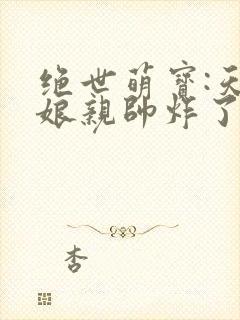 绝世萌寶:天
娘親帥炸了
杏